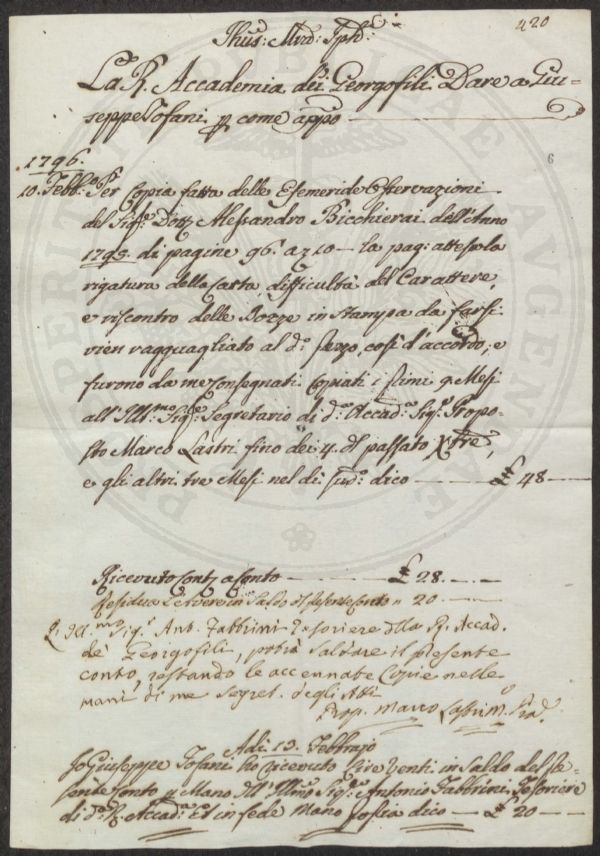 420
Jhus: Mrd: Jph:
La R. Accademia dei Georgofili Dare a Giu=
seppe Tofani p come appo
6
1796.
10. Febb.o Per Copia fatta delle Efemeride Osservazioni
del Sig.e Dott.e Alessandro Bicchierai dell'Anno
1795. di pagine 96. a 10 — la pag: attesa la
rigatura della Carta difficultà del Carattere,
e riscontro delle Bozze in stampa da farsi
vien ragguagliato al d.o prezzo, così d'accordo; e
furono da me Consegnati Copiati i primi 9. Mesi
all'Ill:mo Sig.e Segretario di d.a Accad.a Sig.e Propo=
sto Marco Lastri fino dei 4. del passato Xbre,
e gli altri tre Mesi nel dì sud.o dico — £ 48 —
Ricevuto a Conto — £ 28. —. —
Residua l'avere in Saldo del presente Conto " 20 —. —
L'Ill.mo Sig.e Ant. Fabbrini Tesoriere della R. Accad.
de' Georgofili, potrà saldare il presente
conto, restando le accennate Copie nelle
mani di me Segret. degli Atti
Prop. Marco Lastri
Adì 13. Febbrajo
Io Giuseppe Tofani ho ricevuto Lire Venti in Saldo del pre=
sente Conto p Mano dell'Illmo Sig.e Antonio Fabbrini Tesoriere
di d.a R. Accad.a ed in fede Mano propria dico — £ 20 —
PROSPERITATI PUBLICAE AUGENDAE